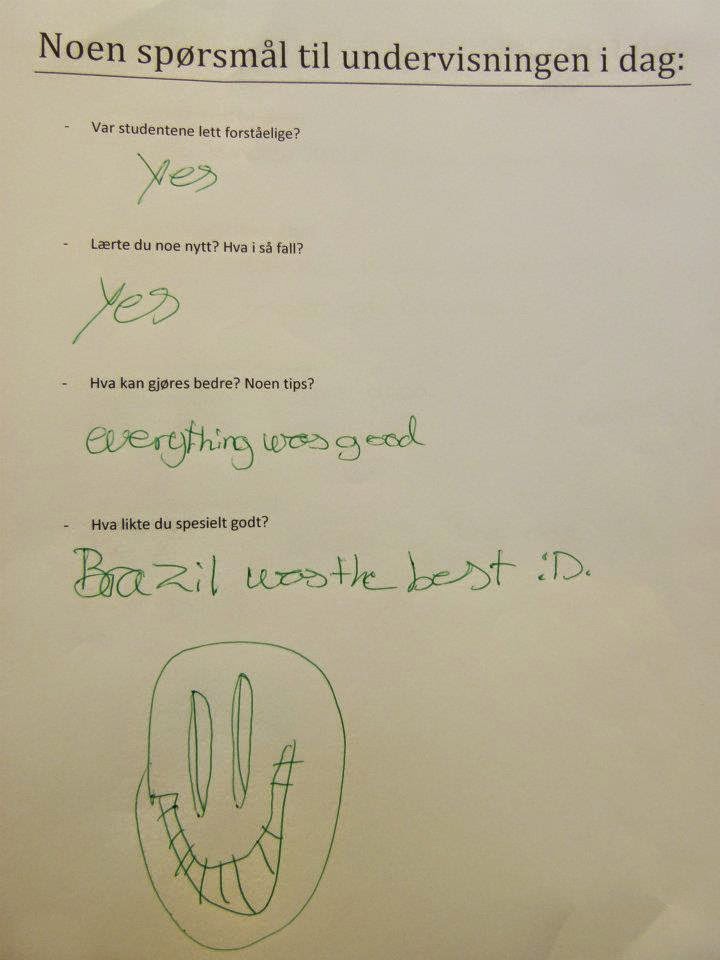 Noen spørsmål til undervisningen i dag:
- Var studentene lett forståelige?
yes
- Lærte du noe nytt? Hva i så fall?
yes
- Hva kan gjøres bedre? Noen tips?
everything was good
- Hva likte du spesielt godt?
Brazil was the best :D.